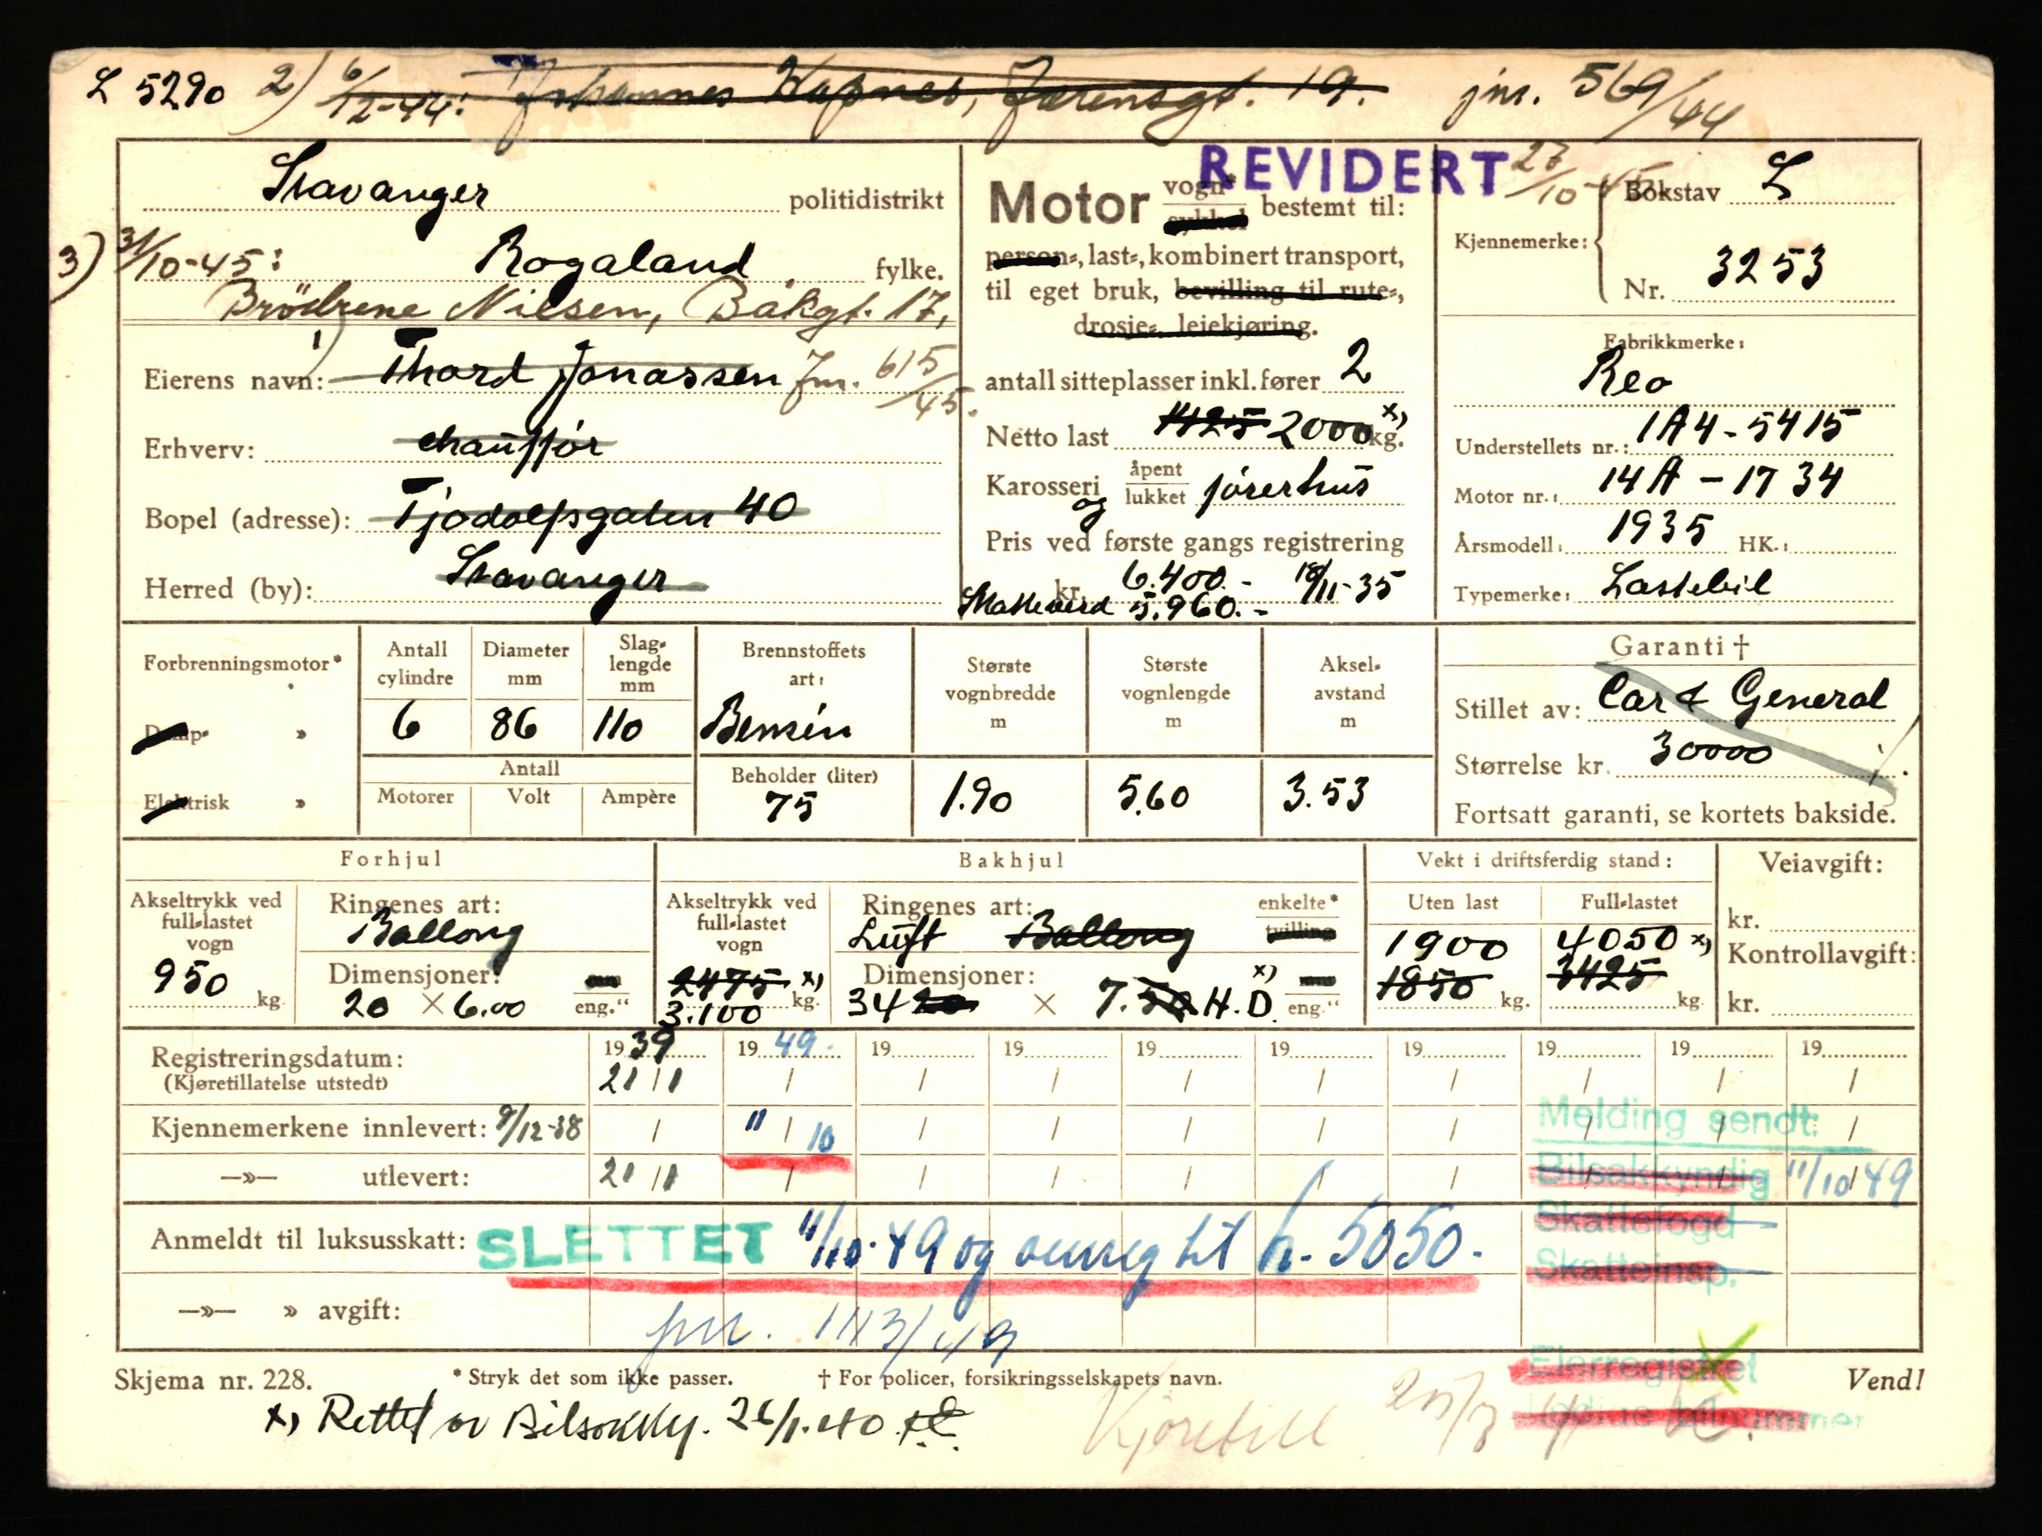 L 5290 2) 6/12-44: Johannes Hapnes, Jærensgt. 19. jnr. 569/44
Stavanger politidistrikt
3) 31/10-45: Rogaland fylke.
Brödrene Nilsen, Bakgt. 17,
1)
Eierens navn: Thord Jonassen Jnr. 615/45.
Erhverv: chauffør
Bopel (adresse): Tjodolfsgaten 40
Herred (by): Stavanger
REVIDERT 27/10-45
Motor vogn* sykkel bestemt til:
person-, last-, kombinert transport,
til eget bruk, bevilling til rute-,
drosje-, leiekjøring.
antall sitteplasser inkl. fører 2
Netto last 1425 2000 x) kg.
Karosseri åpent og lukket førerhus
Pris ved første gangs registrering
kr. 6.400.- 18/11-35
Skatteverd 5.960.-
Kjennemerke: Bokstav L
Nr. 3253
Fabrikkmerke:
Reo
Understellets nr.: 1A4-5415
Motor nr.: 14A-1734
Årsmodell: 1935 HK.:
Typemerke: Lastebil
Forbrenningsmotor*
Damp- »
Elektrisk »
Antall cylindre 6
Diameter mm 86
Slag-lengde mm 110
Antall
Motorer Volt Ampère
Brennstoffets art: Bensin
Beholder (liter) 75
Største vognbredde m 1.90
Største vognlengde m 5.60
Aksel-avstand m 3.53
Garanti †
Stillet av: Car & General
Størrelse kr. 30000
Fortsatt garanti, se kortets bakside.
Forhjul
Akseltrykk ved full-lastet vogn 950 kg.
Ringenes art: Ballong
Dimensjoner: mm
20 × 6.00 eng."
Bakhjul
Akseltrykk ved full-lastet vogn 2475 x) 3.100 kg.
Ringenes art: Luft Ballong enkelte* tvilling
Dimensjoner: x) mm
34 20 × 7.50 H.D. eng."
Vekt i driftsferdig stand:
Uten last 1900 1850 kg.
Full-lastet 4050 x) 3425 kg.
Veiavgift:
kr.
Kontrollavgift:
kr.
Registreringsdatum: 1939 1949. 19 19 19 19 19 19 19 19
(Kjøretillatelse utstedt) 21/1 / / / / / / / / /
Kjennemerkene innlevert: 9/12-38 / 11/10 / / / / / / / /
—»— utlevert: 21/1 / / / / / / / / /
Melding sendt:
Bilsakkyndig 11/10 49
Skattefogd
Skatteinsp.
Anmeldt til luksusskatt: SLETTET 11/10-49 og omreg til h- 5050.
—»— » avgift: jnr. 1113/49
Eierregistret
Skjema nr. 228. * Stryk det som ikke passer. † For policer, forsikringsselskapets navn. Vend!
x) Rettet av Bilsakky. 26/1.40
Kjøretill